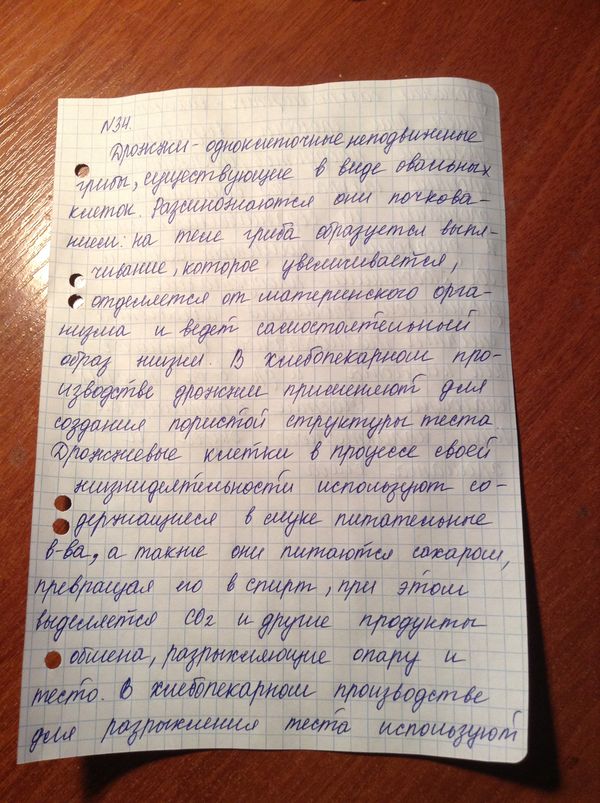 N34.
Дрожжи - одноклеточные неподвижные
грибы, существующие в виде овальных
клеток. Размножаются они почкова-
нием: на теле гриба образуется выпя-
чивание, которое увеличивается,
отделяется от материнского орга-
низма и ведет самостоятельный
образ жизни. В хлебопекарном про-
изводстве дрожжи применяют для
создания пористой структуры теста.
Дрожжевые клетки в процессе своей
жизнидеятельности используют со-
держащиеся в муке питательные
в-ва, а также они питаются сахаром,
превращая его в спирт, при этом
выделяется CO2 и другие продукты
обмена, разрыхляющие опару и
тесто. В хлебопекарном производстве
для разрыхления теста используют